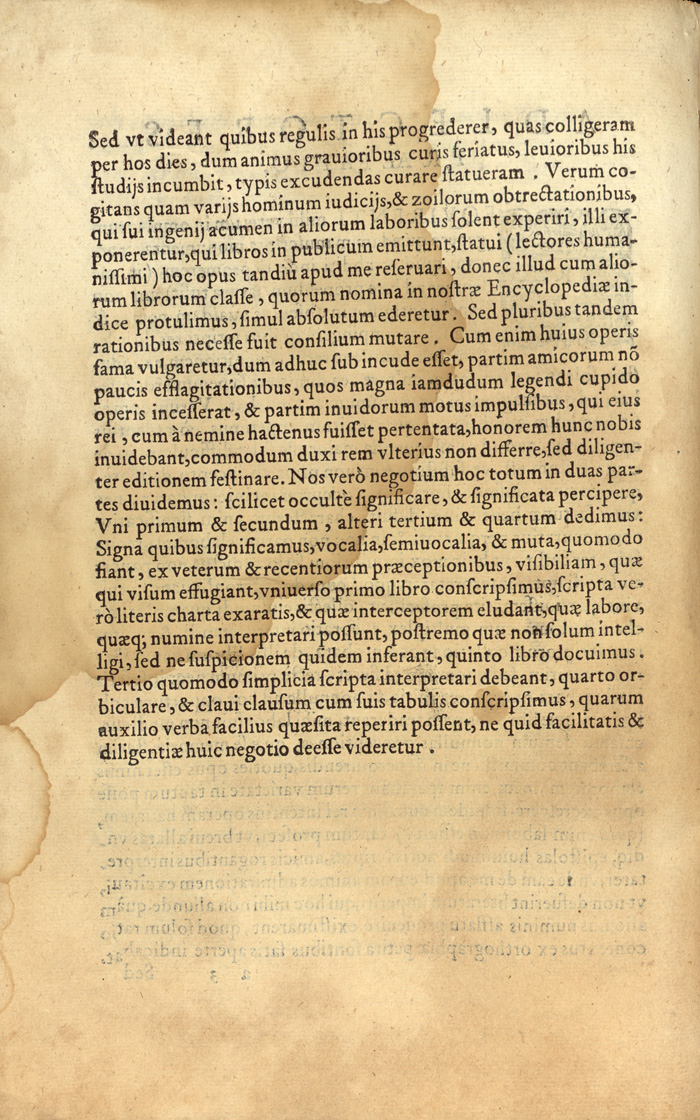 Sed vt videant quibus regulis in his progrederer, quas colligeram
per hos dies, dum animus grauioribus curis feriatus, leuioribus his
ſtudijs incumbit, typis excudendas curare ſtatueram . Verum co-
gitans quam varijs hominum iudicijs,& zoilorum obtrectationibus,
qui ſui ingenij acumen in aliorum laboribus ſolent experiri, illi ex-
ponerentur,qui libros in publicum emittunt,ſtatui (lectores huma-
niſſimi) hoc opus tandiu apud me reſeruari, donec illud cum alio-
rum librorum claſſe, quorum nomina in noſtræ Encyclopediæ in-
dice protulimus, ſimul abſolutum ederetur. Sed pluribus tandem
rationibus neceſſe fuit conſilium mutare . Cum enim huius operis
fama vulgaretur,dum adhuc ſub incude eſſet, partim amicorum nõ
paucis efflagitationibus, quos magna iamdudum legendi cupido
operis inceſſerat, & partim inuidorum motus impulſibus, qui eius
rei, cum à nemine hactenus fuiſſet pertentata,honorem hunc nobis
inuidebant,commodum duxi rem vlterius non differre,ſed diligen-
ter editionem feſtinare. Nos verò negotium hoc totum in duas par-
tes diuidemus: ſcilicet occultè ſignificare, & ſignificata percipere,
Vni primum & ſecundum , alteri tertium & quartum dedimus:
Signa quibus ſignificamus,vocalia,ſemiuocalia, & muta,quomodo
fiant, ex veterum & recentiorum præceptionibus, viſibiliam, quæ
qui viſum effugiant,vniuerſo primo libro conſcripſimus,ſcripta ve-
rò literis charta exaratis,& quæ interceptorem eludant,quæ labore,
quæq; numine interpretari poſſunt, poſtremo quæ non ſolum intel-
ligi, ſed ne ſuſpicionem quidem inferant, quinto libro docuimus .
Tertio quomodo ſimplicia ſcripta interpretari debeant, quarto or-
biculare, & claui clauſum cum ſuis tabulis conſcripſimus, quarum
auxilio verba facilius quæſita reperiri poſſent, ne quid facilitatis &
diligentiæ huic negotio deeſſe videretur .